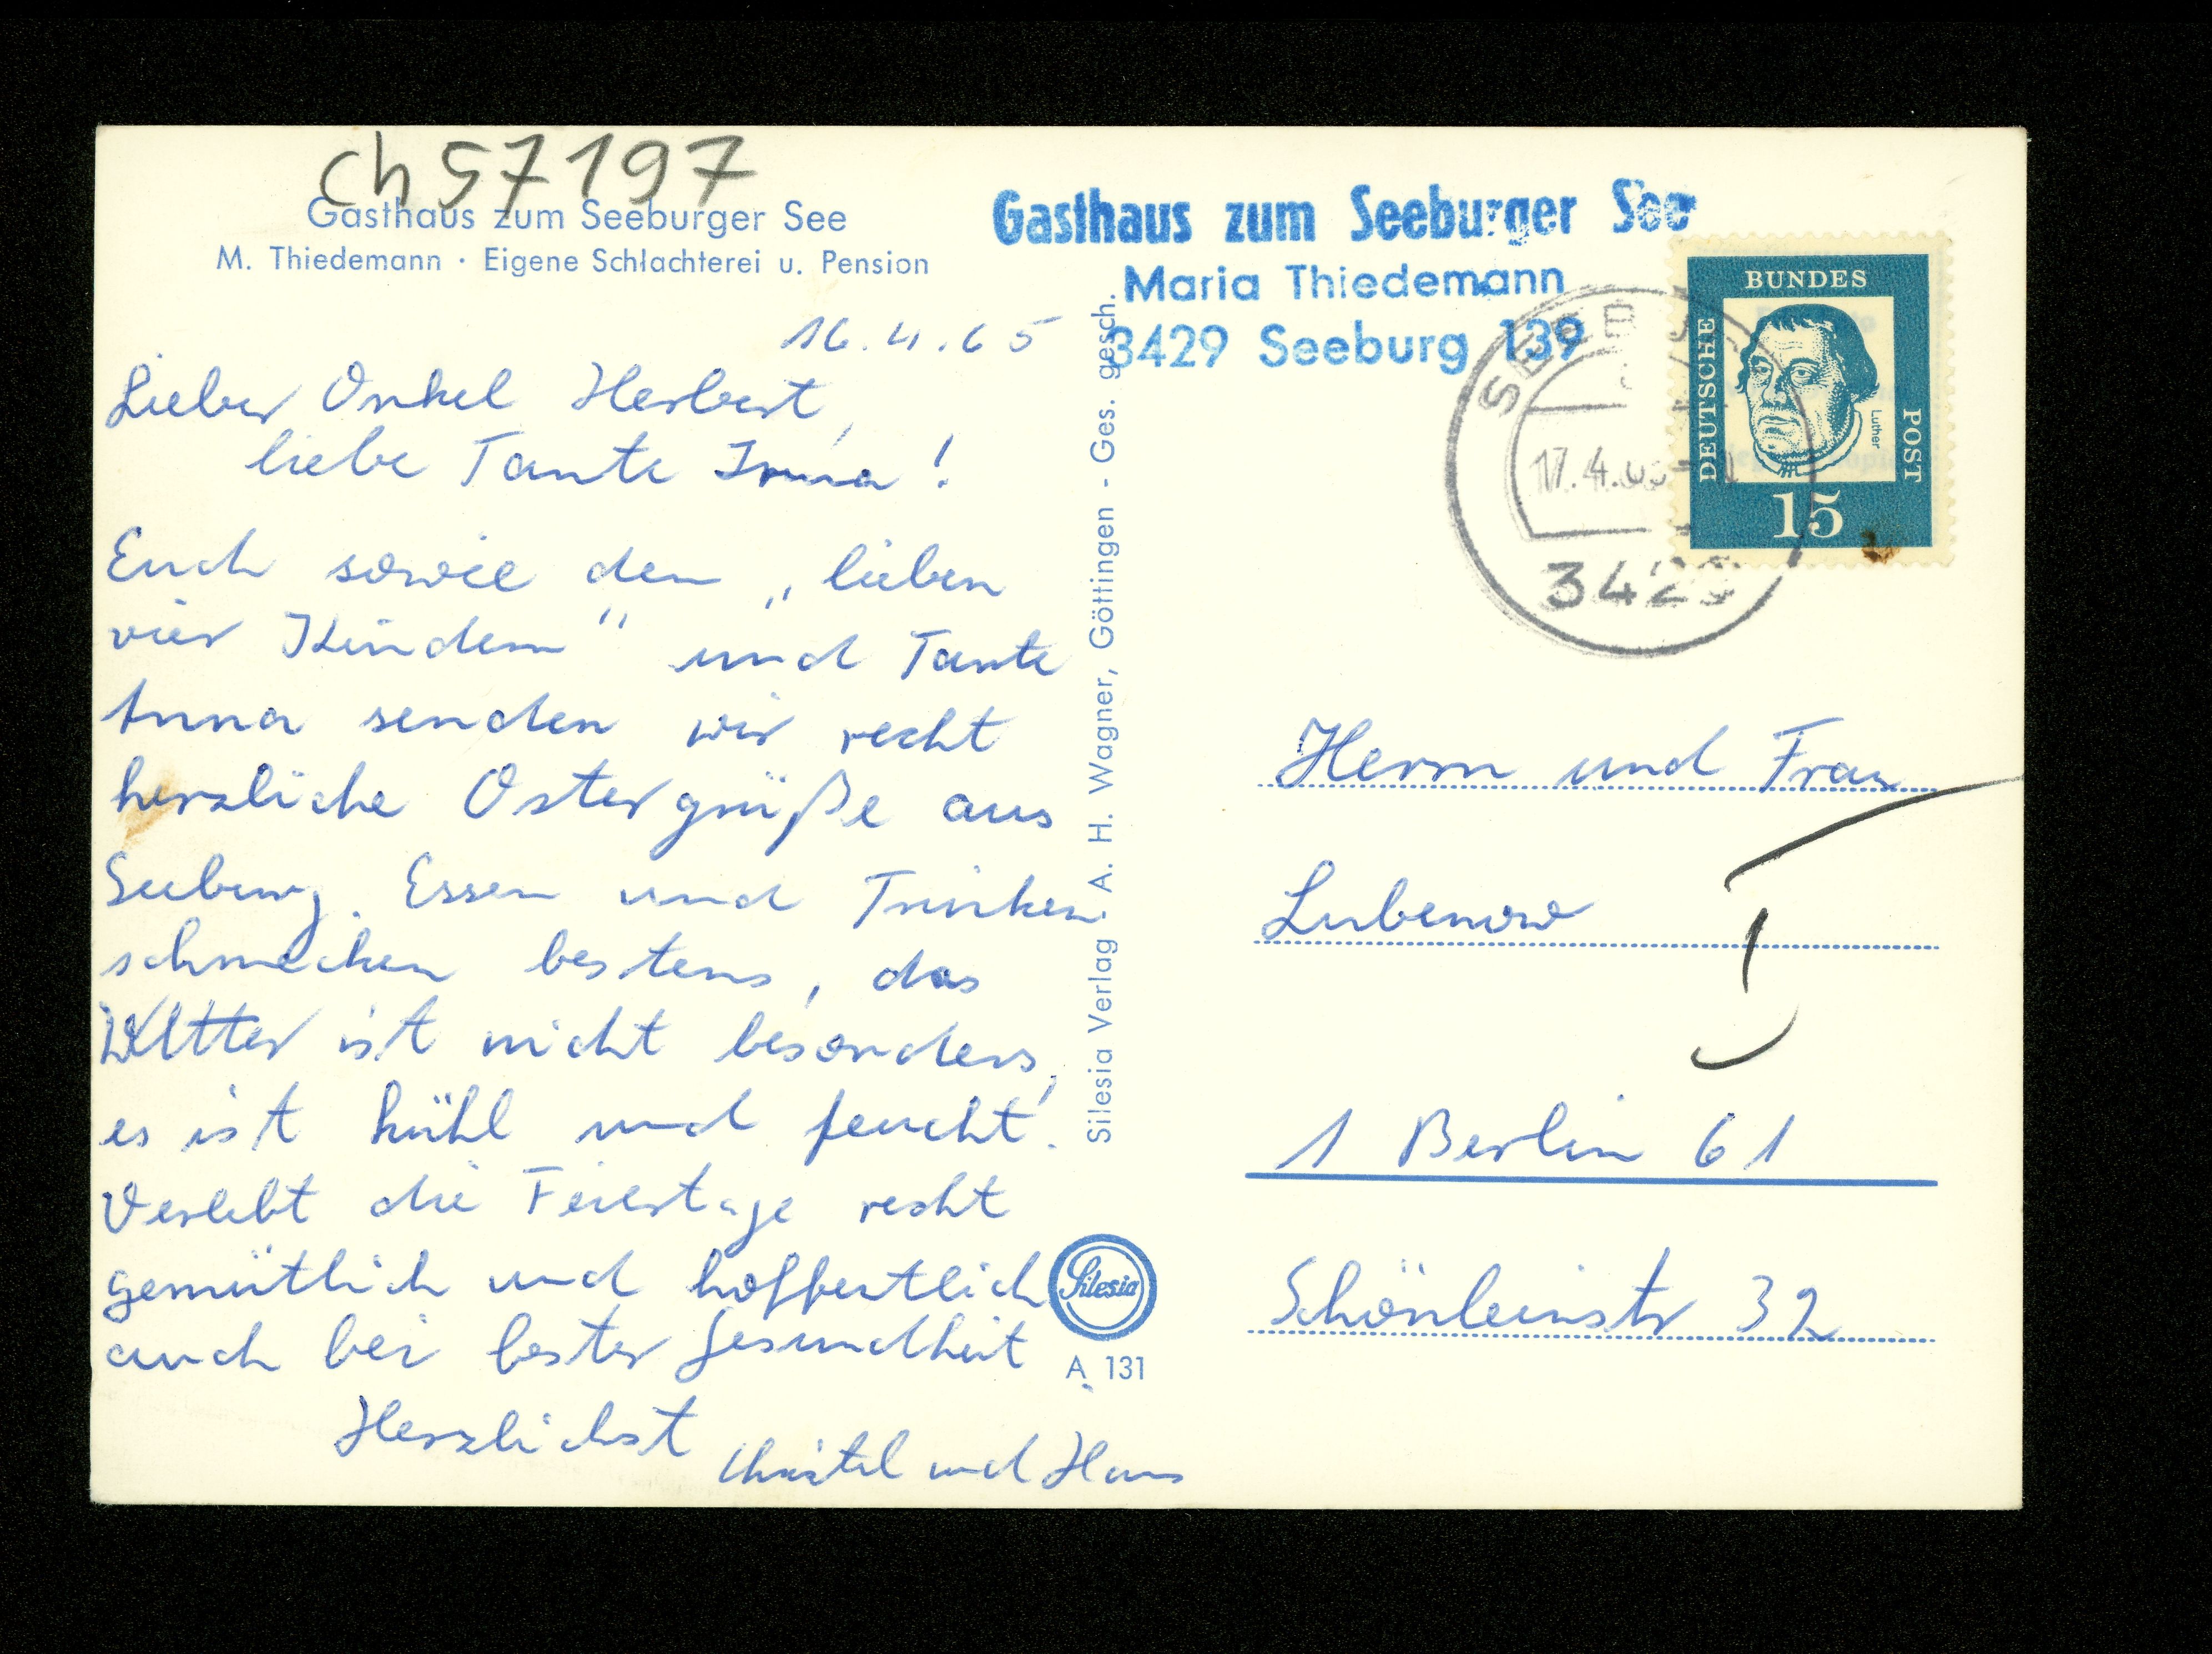 ch 57197
Gasthaus zum Seeburger See
M. Thiedemann · Eigene Schlachterei u. Pension
16.4.65
Lieber Onkel Herbert,
liebe Tante Irma!
Euch sowie den „lieben
vier Kindern" und Tante
Anna senden wir recht
herzliche Ostergrüße aus
Seeburg. Essen und Trinken
schmecken bestens, das
Wetter ist nicht besonders,
es ist kühl und feucht.
Verlebt die Feiertage recht
gemütlich und hoffentlich
auch bei bester Gesundheit
Herzlichst
Christel und Hans
Silesia Verlag · A. H. Wagner, Göttingen - Ges. gesch.
Silesia
A 131
Gasthaus zum Seeburger See
Maria Thiedemann
3429 Seeburg 139
SEEBURG
17.4.65
3429
DEUTSCHE
BUNDES
POST
Luther
15
Herrn und Frau
Lubenow
1 Berlin 61
Schönleinstr 32